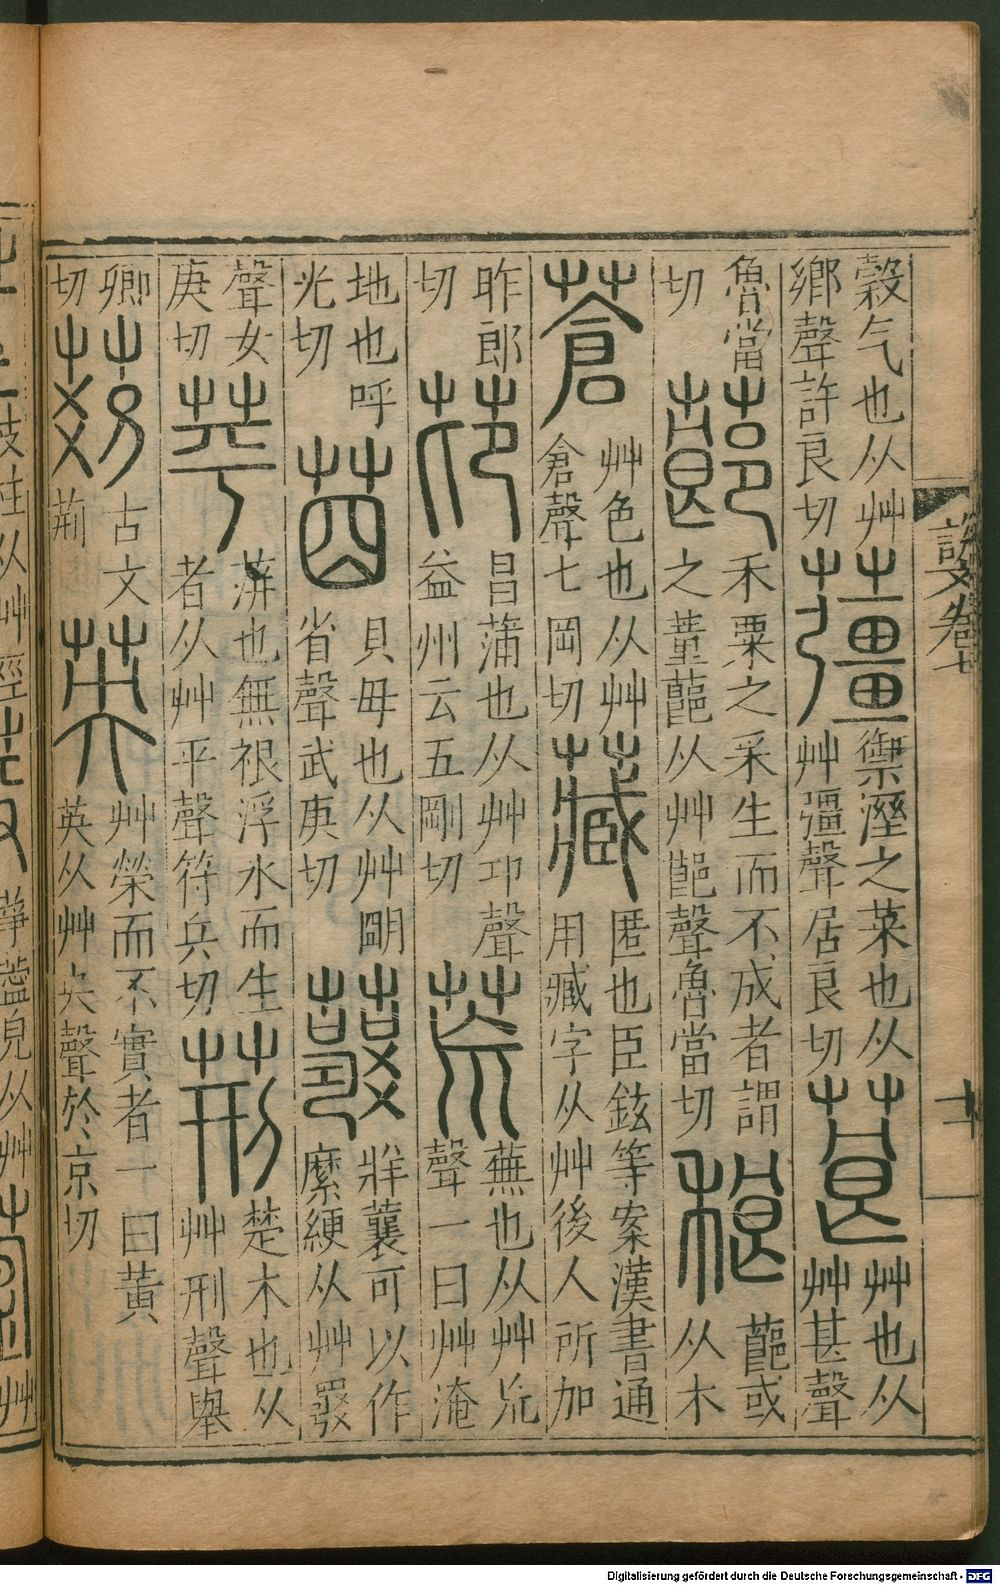 說文卷七
十一
穀气也从艸
鄉聲許良切
薑
禦溼之菜也从
艸彊聲居良切
莨
艸也从
艸甚聲
魯當
切
蓈
禾粟之采生而不成者謂
之蕫蓈从艸郎聲魯當切
稂
蓈或
从木
蒼
艸色也从艸
倉聲七岡切
藏
匿也臣鉉等案漢書通
用臧字从艸後人所加
昨郎
切
䒢
昌蒲也从艸卭聲
益州云五剛切
荒
蕪也从艸㠩
聲一曰艸淹
地也呼
光切
莔
貝母也从艸朙
省聲武庚切
牂蘘可以作
縻綆从艸
聲女
庚切
苹
蓱也無根浮水而生
者从艸平聲符兵切
荆
楚木也从
艸刑聲舉
卿
切
古文
荊
英
艸榮而不實者一曰黃
英从艸央聲於京切
Digitalisierung gefördert durch die Deutsche Forschungsgemeinschaft - DFG